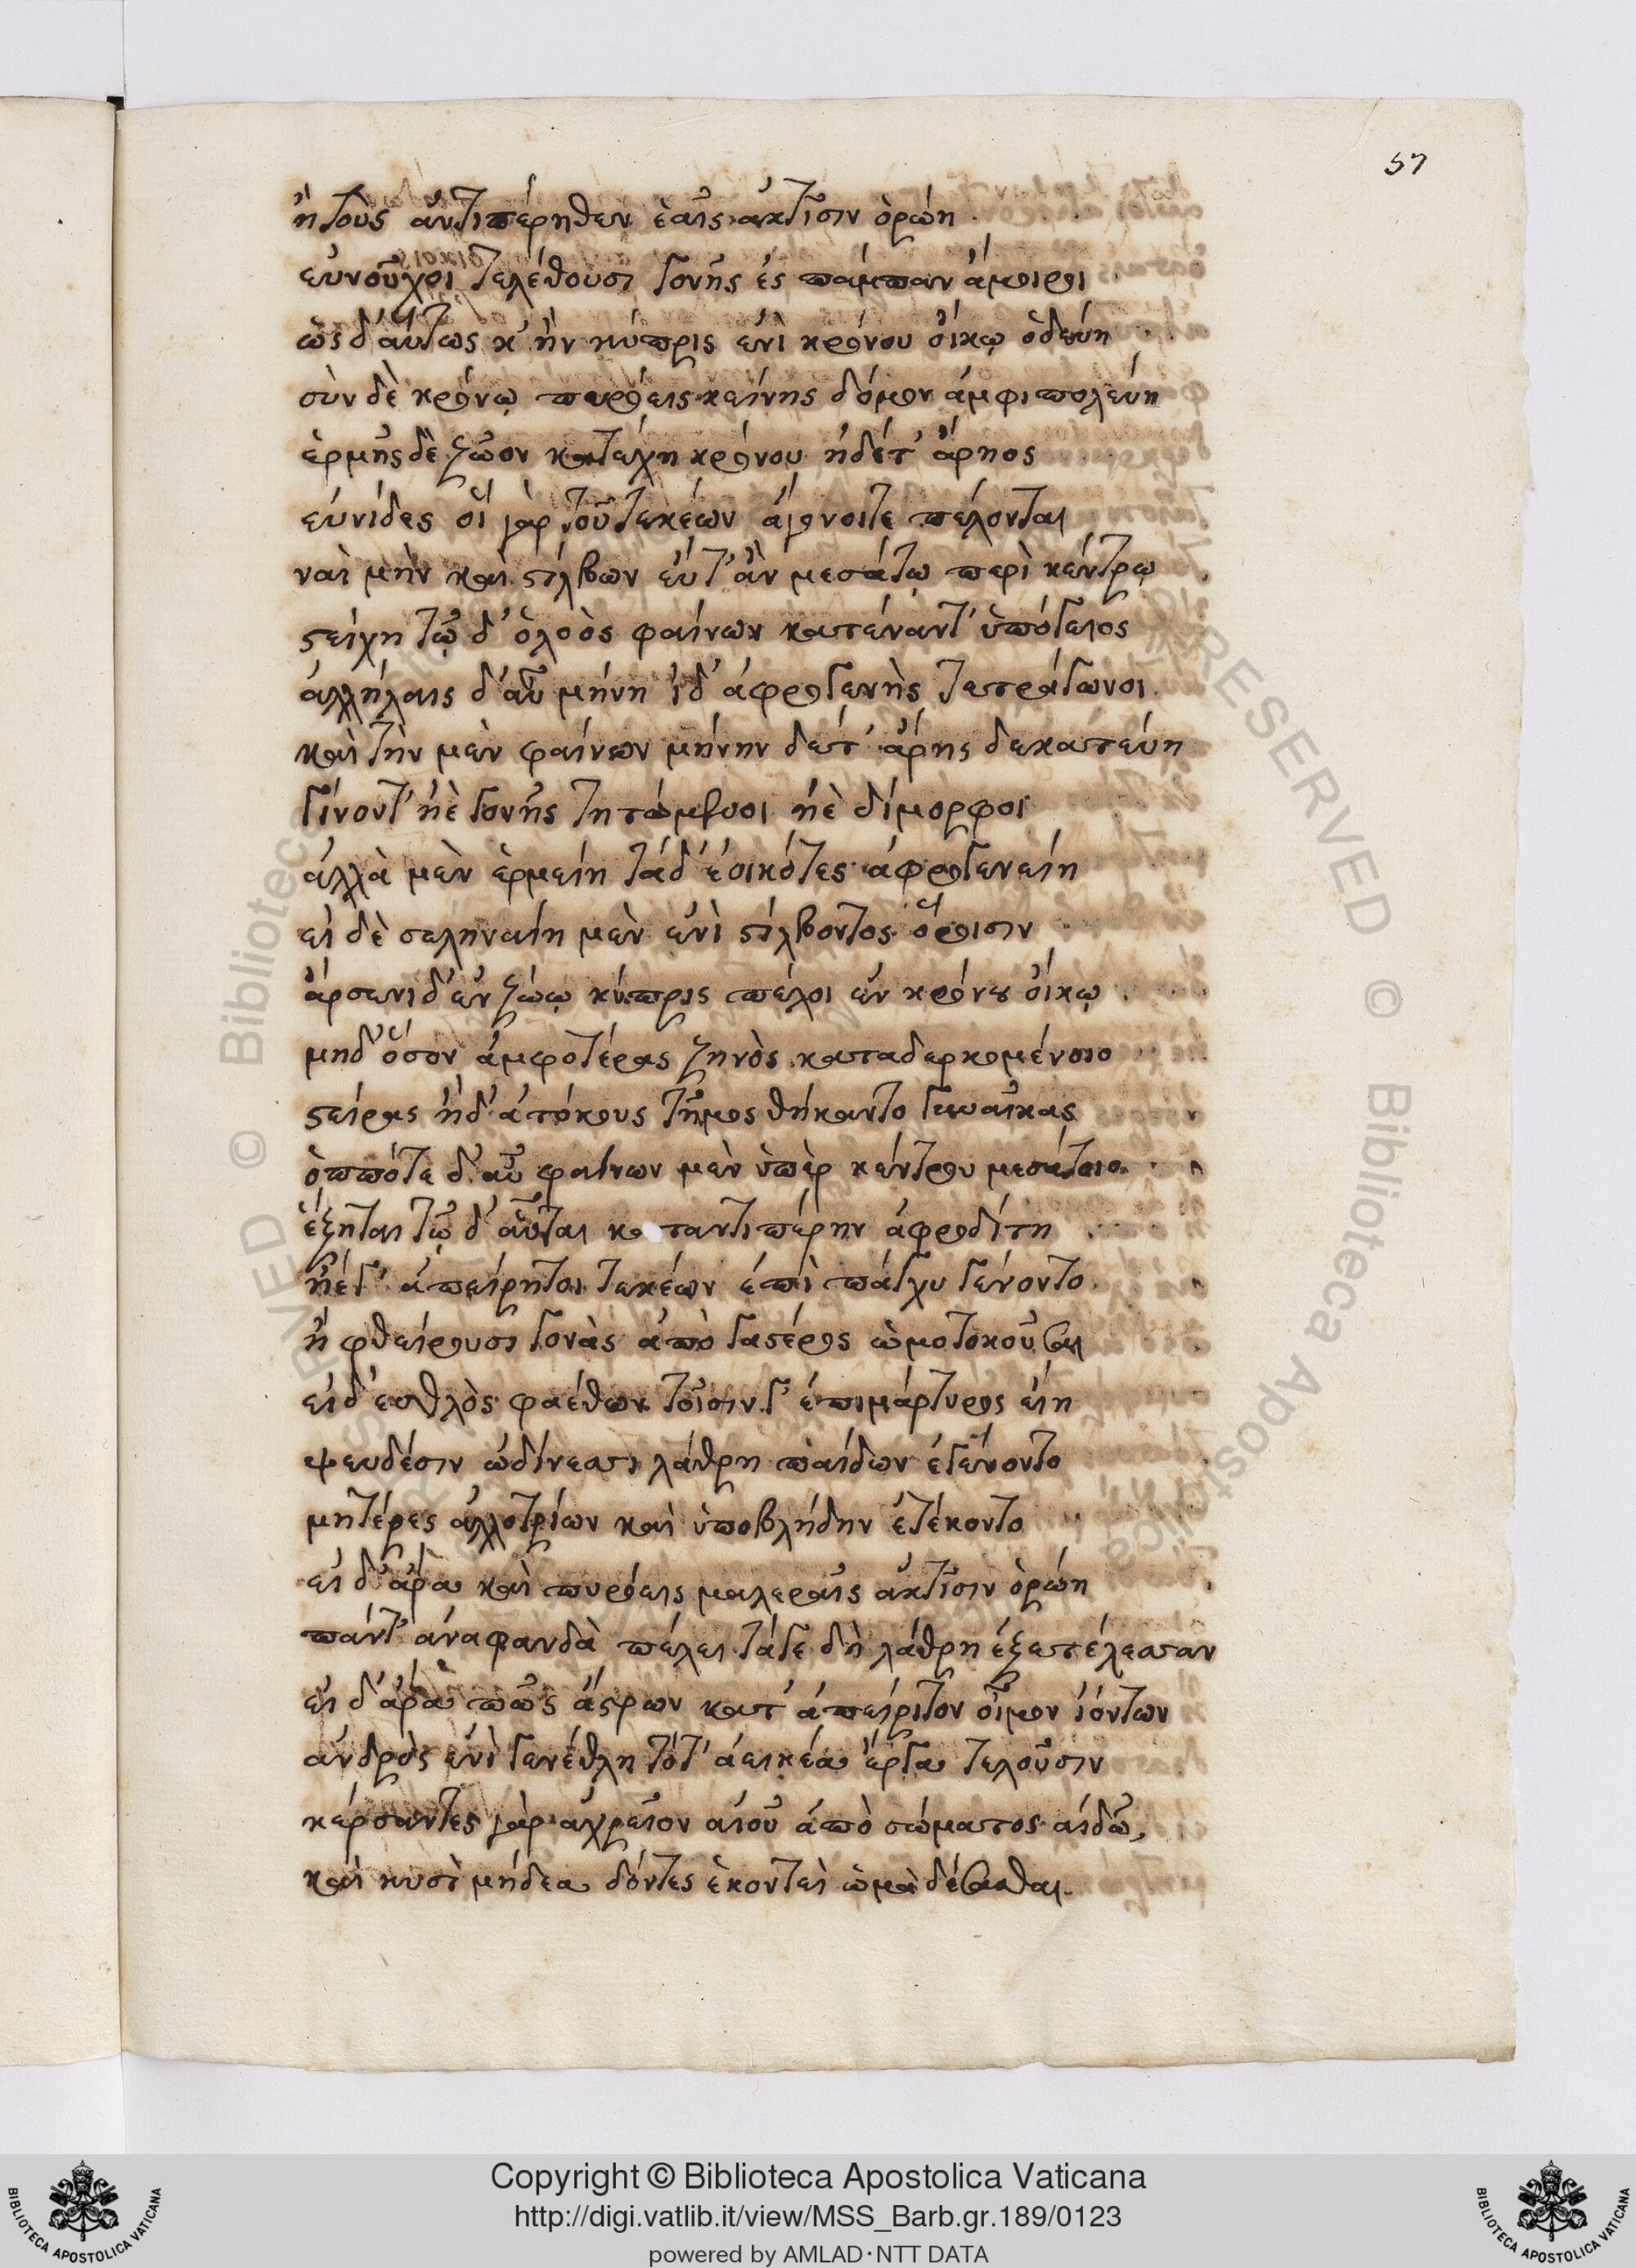 57
ἢ τοὺς ἀντιπέρηθεν ἑαῖς ἀκτῖσιν ὁρώη
εὐνοῦχοι τελέθουσι γονῆς ἐς πάμπαν ἄμοιροι
ὡς δ' αὕτως κ' ἢν κύπρις ἐνὶ κρόνου οἴκῳ ὁδεύη
σὺν δὲ κρόνῳ πυρόεις κείνης δόμον ἀμφιπολεύη
ἑρμῆς δὲ ζῶον κατέχη κρόνου ἠδέτ' ἄρηος
εὔνιδες οἵ γὰρ τοῦ τεκέων ἄγονοίτε πέλονται
ναὶ μὴν καὶ στίλβων εὖτ' ἂν μεσάτῳ περὶ κέντρῳ
στείχη τῷ δ' ὀλοὸς φαίνων κατέναντ' ὑπόγειος
ἀλλήλαις δ' αὖ μήνη ἰδ' ἀφρογενὴς τετράγωνοι
καὶ τὴν μὲν φαίνων μήνην δέτ' ἄρης δεκατεύη
γίνοντ' ἠὲ γονῆς τητώμενοι ἠὲ δίμορφοι
ἀλλὰ μὲν ἑρμείη τάδ' ἐοικότες ἀφρογενείη
εἰ δὲ σεληναίη μὲν ἐνὶ στίλβοντος ὅροισιν
ἄρσενι δ' ἐν ζώῳ κύπρις πέλοι ἐν κρόνου οἴκῳ
μηδ' ὅσον ἀμφοτέρας ζηνὸς καταδερκομένοιο
στείρας ἠδ' ἀτόκους τῆμος θήκαντο γυναῖκας
ὁππότε δ' αὖ φαίνων μὲν ὑπὲρ κέντρου μεσάτοιο
ἕζηται τῷ δ' αὖται καταντιπέρην ἀφροδίτη
ἠέγ' ἀπείρητοι τεκέων ἐπὶ πάγχυ γένοντο
ἢ φθείρουσι γονὰς ἀπὸ γαστέρος ὠμοτοκοῦσαι
εἰ δ' ἐσθλὸς φαέθων τοῖσιν γ' ἐπιμάρτυρος εἴη
ψευδέσιν ὠδίνεσσι λάθρη παίδων ἐγένοντο
μητέρες ἀλλοτρίων καὶ ὑποβλήδην ἐτέκοντο
εἰ δ' ἄρα καὶ πυρόεις μαλεραῖς ἀκτῖσιν ὁρώη
πάντ' ἀναφανδὰ πέλει τάγε δὴ λάθρη ἐξετέλεσσαν
εἰ δ' ἄρα πῶς ἄστρων κατ' ἀπείριτον οἶμον ἰόντων
ἀνδρὸς ἐνὶ γενέθλη τότ' ἀεικέα ἔργα τελοῦσιν
κέρσαντες γὰρ ἀχρεῖον αἰοῦ ἀπὸ σώματος αἰδῶ,
καὶ κυσὶ μήδεα δόντες ἑκοντεὶ ὠμὰ δέσασθαι.
Copyright © Biblioteca Apostolica Vaticana
http://digi.vatlib.it/view/MSS_Barb.gr.189/0123
powered by AMLAD·NTT DATA